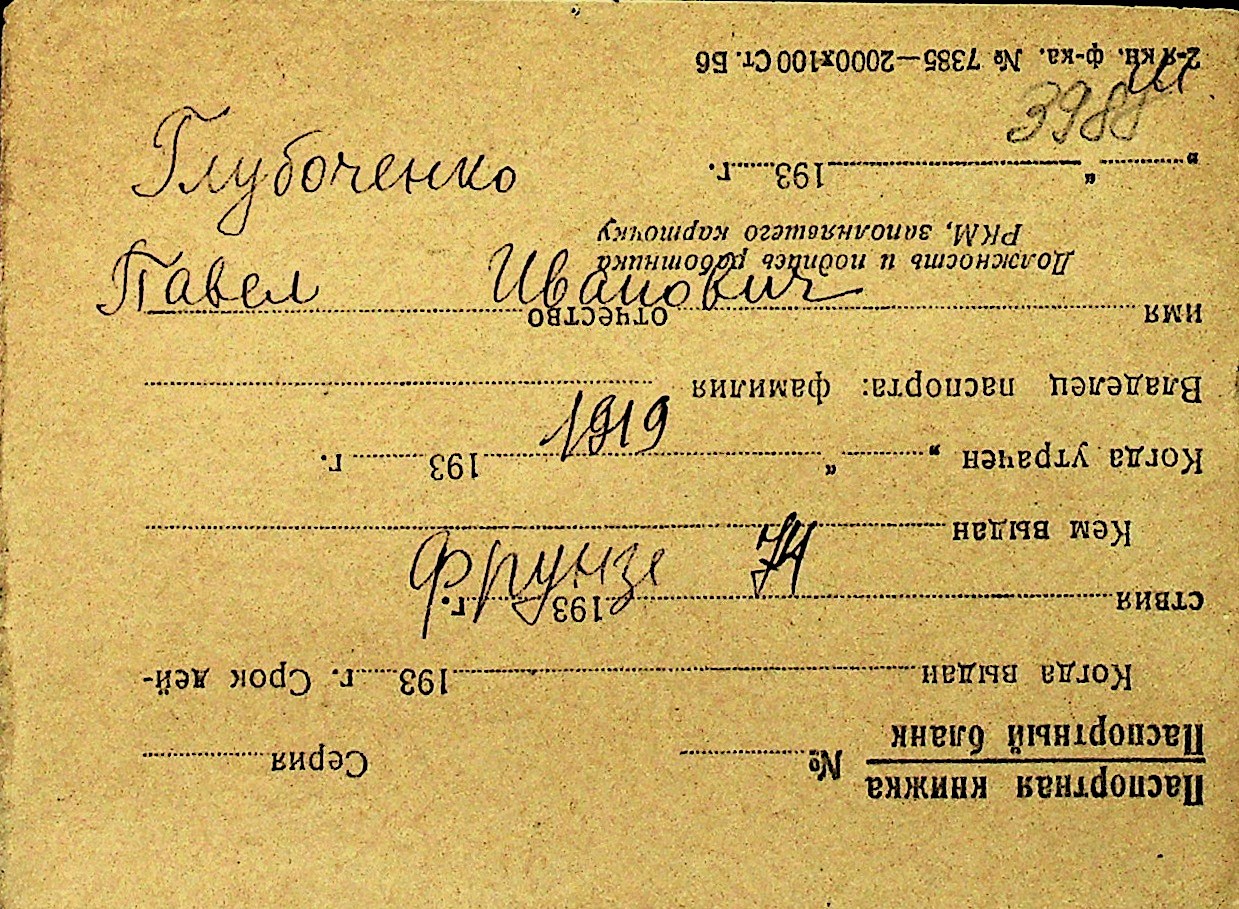 3988
Глубоченко
Павел Иванович
1919
Фрунзе 74
Паспортная книжка
Паспортный бланк № Серия
Когда выдан 193 г. Срок дей-
ствия 193 г.
Кем выдан
Когда утрачен „ “ 193 г.
Владелец паспорта: фамилия
имя отчество
Должность и подпись работника
РКМ, заполнявшего карточку
„ “ 193 г.
2-я кн. ф-ка. № 7385—2000х100 Ст. Б6